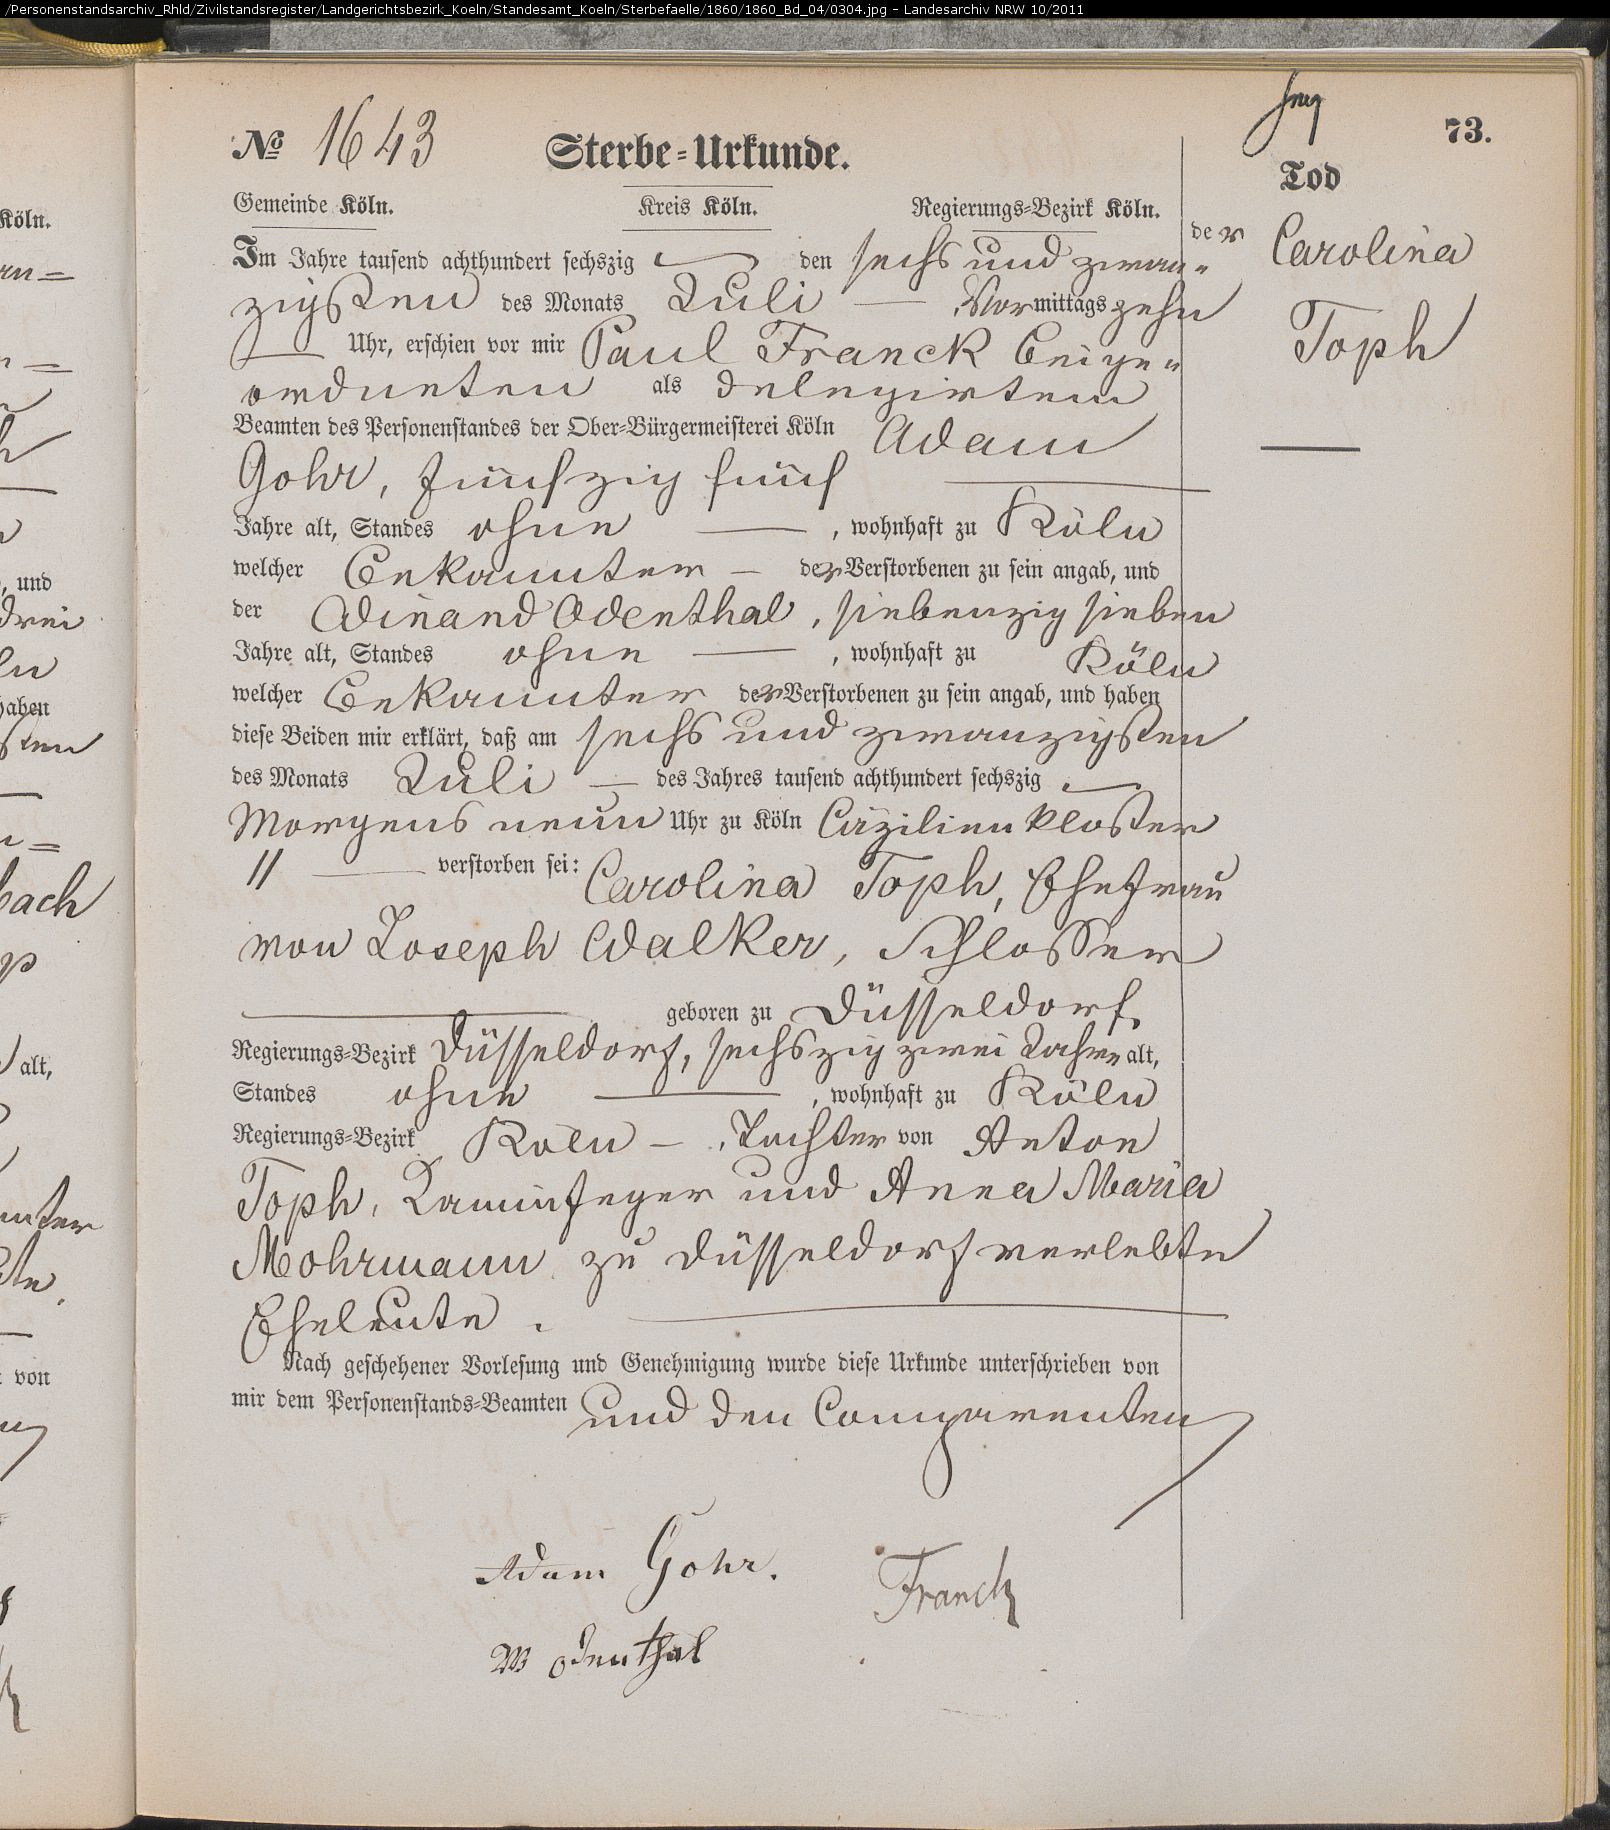 /Personenstandsarchiv_Rhld/Zivilstandsregister/Landgerichtsbezirk_Koeln/Standesamt_Koeln/Sterbefaelle/1860/1860_Bd_04/0304.jpg - Landesarchiv NRW 10/2011
73.
No 1643 Sterbe-Urkunde.
Tod
Gemeinde Köln. Kreis Köln. Regierungs-Bezirk Köln.
der Carolina
Toph
Im Jahre tausend achthundert sechszig den sechs und zwan-
zigsten des Monats Juli Vormittags zehn
Uhr, erschien vor mir Paul Franck Beige-
ordneten als delegirtem
Beamten des Personenstandes der Ober-Bürgermeisterei Köln Adam
Gohr, fünfzig fünf
Jahre alt, Standes ohne, wohnhaft zu Köln
welcher Bekannter der Verstorbenen zu sein angab, und
der Winand Odenthal, siebenzig sieben
Jahre alt, Standes ohne, wohnhaft zu Köln
welcher Bekannter der Verstorbenen zu sein angab, und haben
diese Beiden mir erklärt, daß am sechs und zwanzigsten
des Monats Juli des Jahres tausend achthundert sechszig
Morgens neun Uhr zu Köln Cäzilienkloster
11 verstorben sei: Carolina Toph, Ehefrau
von Joseph Walker, Schlosser
geboren zu Düsseldorf,
Regierungs-Bezirk Düsseldorf, sechszig zwei Jahre alt,
Standes ohne, wohnhaft zu Köln
Regierungs-Bezirk Köln, Tochter von Anton
Toph, Kaminfeger und Anna Maria
Mohrmann zu Düsseldorf verlebte
Eheleute.
Nach geschehener Vorlesung und Genehmigung wurde diese Urkunde unterschrieben von
mir dem Personenstands-Beamten und den Comparenten
Adam Gohr.
Franck
W Odenthal
Köln.
, und
drei
haben
bach
alt,
von